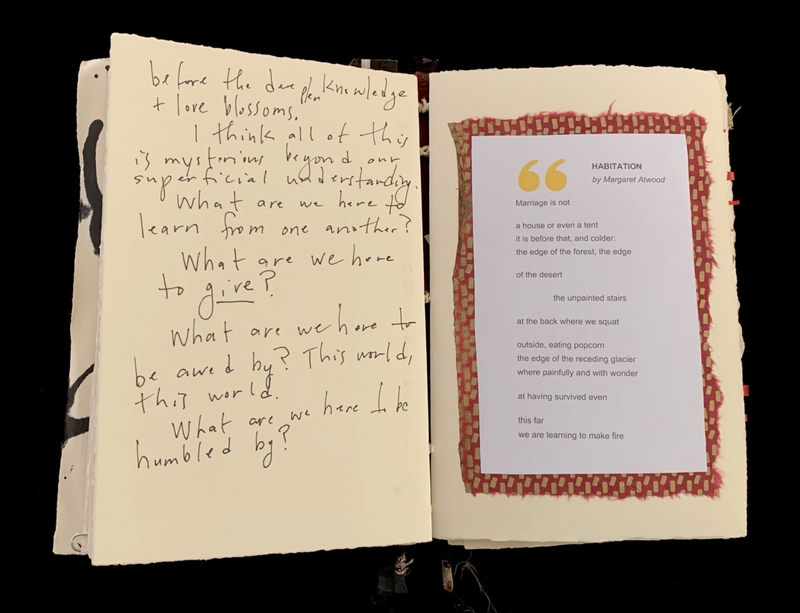 before the deepen knowledge
+ love blossoms.
I think all of this
is mysterious beyond our
superficial understanding.
What are we here to
learn from one another?
What are we here
to give?
What are we here to
be awed by? This world,
this world.
What are we here to be
humbled by?
HABITATION
by Margaret Atwood
Marriage is not
a house or even a tent
it is before that, and colder:
the edge of the forest, the edge
of the desert
the unpainted stairs
at the back where we squat
outside, eating popcorn
the edge of the receding glacier
where painfully and with wonder
at having survived even
this far
we are learning to make fire